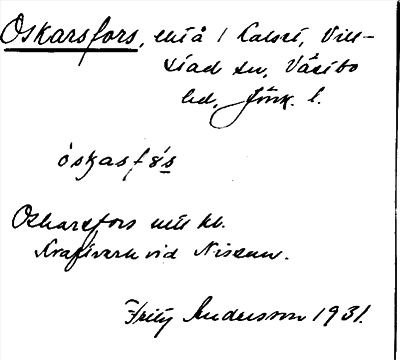 Oskarsfors, enstå / Kalset, Vill-
stad sn, Västbo
hd, Jönk. l.
óskasfó̀s
Oskarsfors un kl.
Kraftverk vid Nissan.
Fritz Andersson 1931.